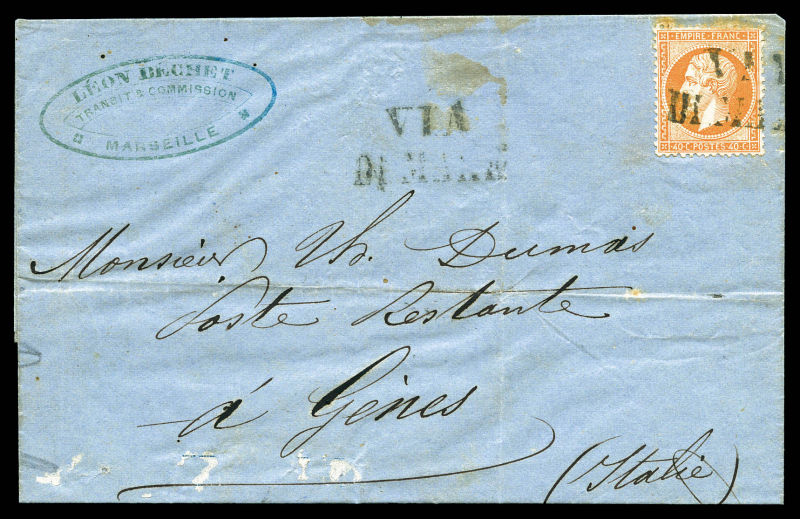 LÉON DÉCHET
TRANSIT & COMMISSION
MARSEILLE
EMPIRE·FRANC·
40·C·POSTES·40·C·
VIA
DI MARE
VIA
DI MA
Monsieur Th. Dumas
Poste Restante
à Gênes
(Italie)